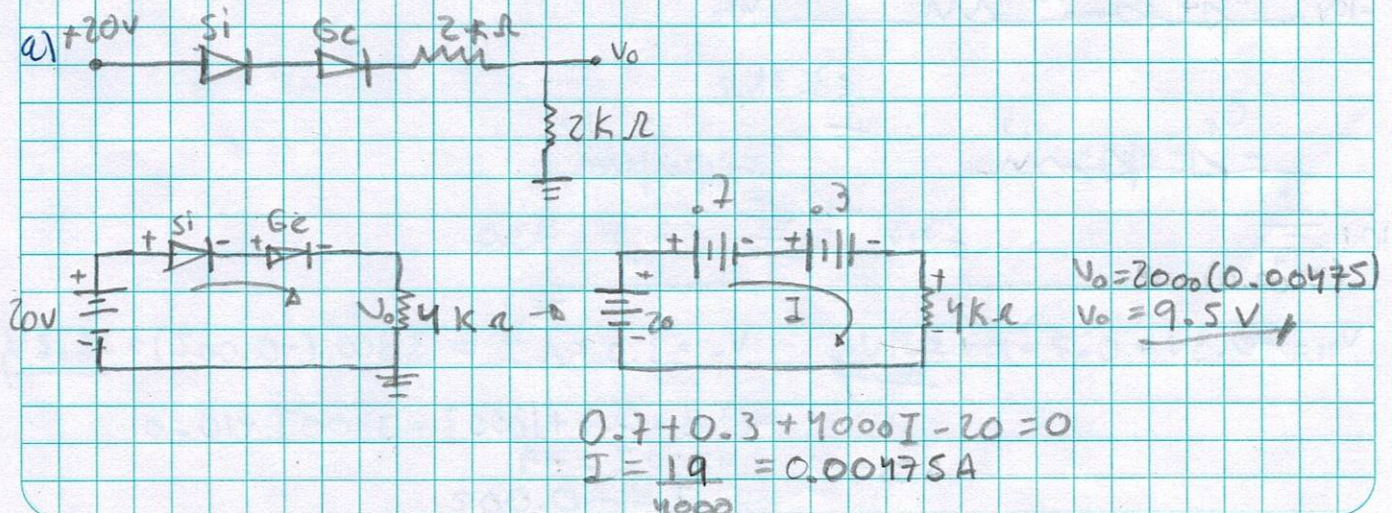 a) +20V Si Ge 2kΩ Vo
2kΩ
Si Ge
+ - + -
+
20V
-
Vo 4KΩ
.7 .3
+ - + -
+
20
-
I
+
4KΩ
-
Vo=2000(0.00475)
Vo=9.5V
0.7+0.3+4000I-20=0
I=19/4000=0.00475A